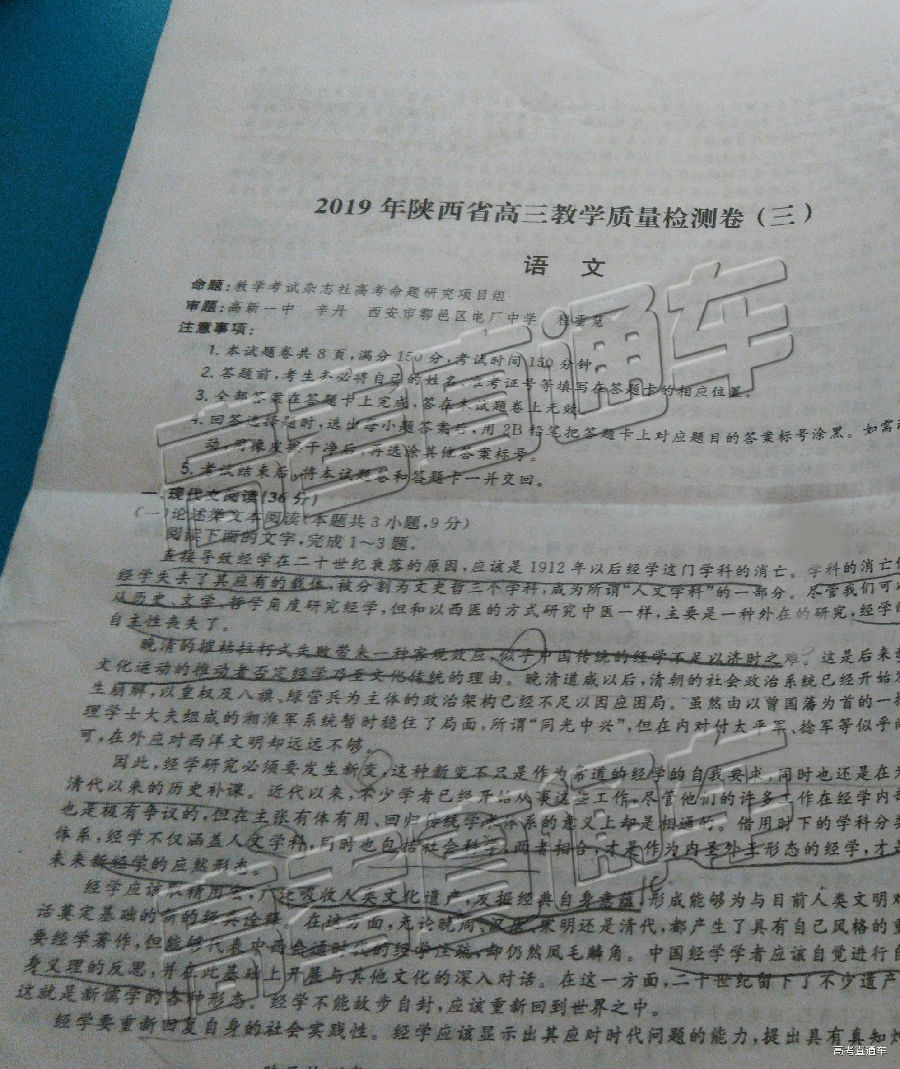 2019年陕西省高三教学质量检测卷(三)
语 文
命题:教学考试杂志社高考命题研究项目组
审题:高新一中 辛丹 西安市鄠邑区电厂中学 程雪慧
注意事项:
1.本试题卷共8页,满分150分,考试时间150分钟。
2.答题前,考生务必将自己的姓名、准考证号等填写在答题卡的相应位置。
3.全部答案在答题卡上完成,答在本试题卷上无效。
4.回答选择题时,选出每小题答案后,用2B铅笔把答题卡上对应题目的答案标号涂黑。如需
动,用橡皮擦干净后,再选涂其他答案标号。
5.考试结束后,将本试题卷和答题卡一并交回。
一、现代文阅读(36分)
(一)论述类文本阅读(本题共3小题,9分)
阅读下面的文字,完成1~3题。
直接导致经学在二十世纪衰落的原因,应该是1912年以后经学这门学科的消亡。学科的消亡
经学失去了其应有的载体,被分割为文史哲三个学科,成为所谓“人文学科”的一部分。尽管我们可
从历史、文学、哲学角度研究经学,但和以西医的方式研究中医一样,主要是一种外在的研究,经学
自主性丧失了。
晚清的摧枯拉朽式失败带来一种客观效应,似乎中国传统的经学不足以济时之难。这是后来
文化运动的推动者否定经学乃至文化传统的理由。晚清道咸以后,清朝的社会政治系统已经开始
生崩解,以重权及八旗、绿营兵为主体的政治架构已经不足以因应困局。虽然由以曾国藩为首的一
理学士大夫组成的湘淮军系统暂时稳住了局面,所谓“同光中兴”,但在内对付太平军、捻军等似乎尚
可,在外应对西洋文明却远远不够。
因此,经学研究必须要发生新变,这种新变不只是作为常道的经学的自我要求,同时也还是在
清代以来的历史补课。近代以来,不少学者已经开始从事这些工作,尽管他们的许多工作在经学内
也是极有争议的,但在主张有体有用、回归传统学术体系的意义上却是相通的。借用时下的学科分
体系,经学不仅涵盖人文学科,同时也包括社会科学,两者相合,才是作为内圣外王形态的经学,才
未来新经学的应然形态。
经学应该取精用宏,广泛吸收人类文化遗产,发掘经典自身意蕴,形成能够为与目前人类文明
话奠定基础的新的经典诠释。在这方面,无论晚周、汉唐、宋明还是清代,都产生了具有自己风格的
要经学著作,但能够代表中西会通时代的经学注疏,却仍然凤毛麟角。中国经学学者应该自觉进行
身义理的反思,并在此基础上开展与其他文化的深入对话。在这一方面,二十世纪留下了不少遗产
这就是新儒学的各种形态。经学不能故步自封,应该重新回到世界之中。
经学要重新回复自身的社会实践性。经学应该显示出其应对时代问题的能力,提出具有真知
高考直通车
高考直通车
高考直通车